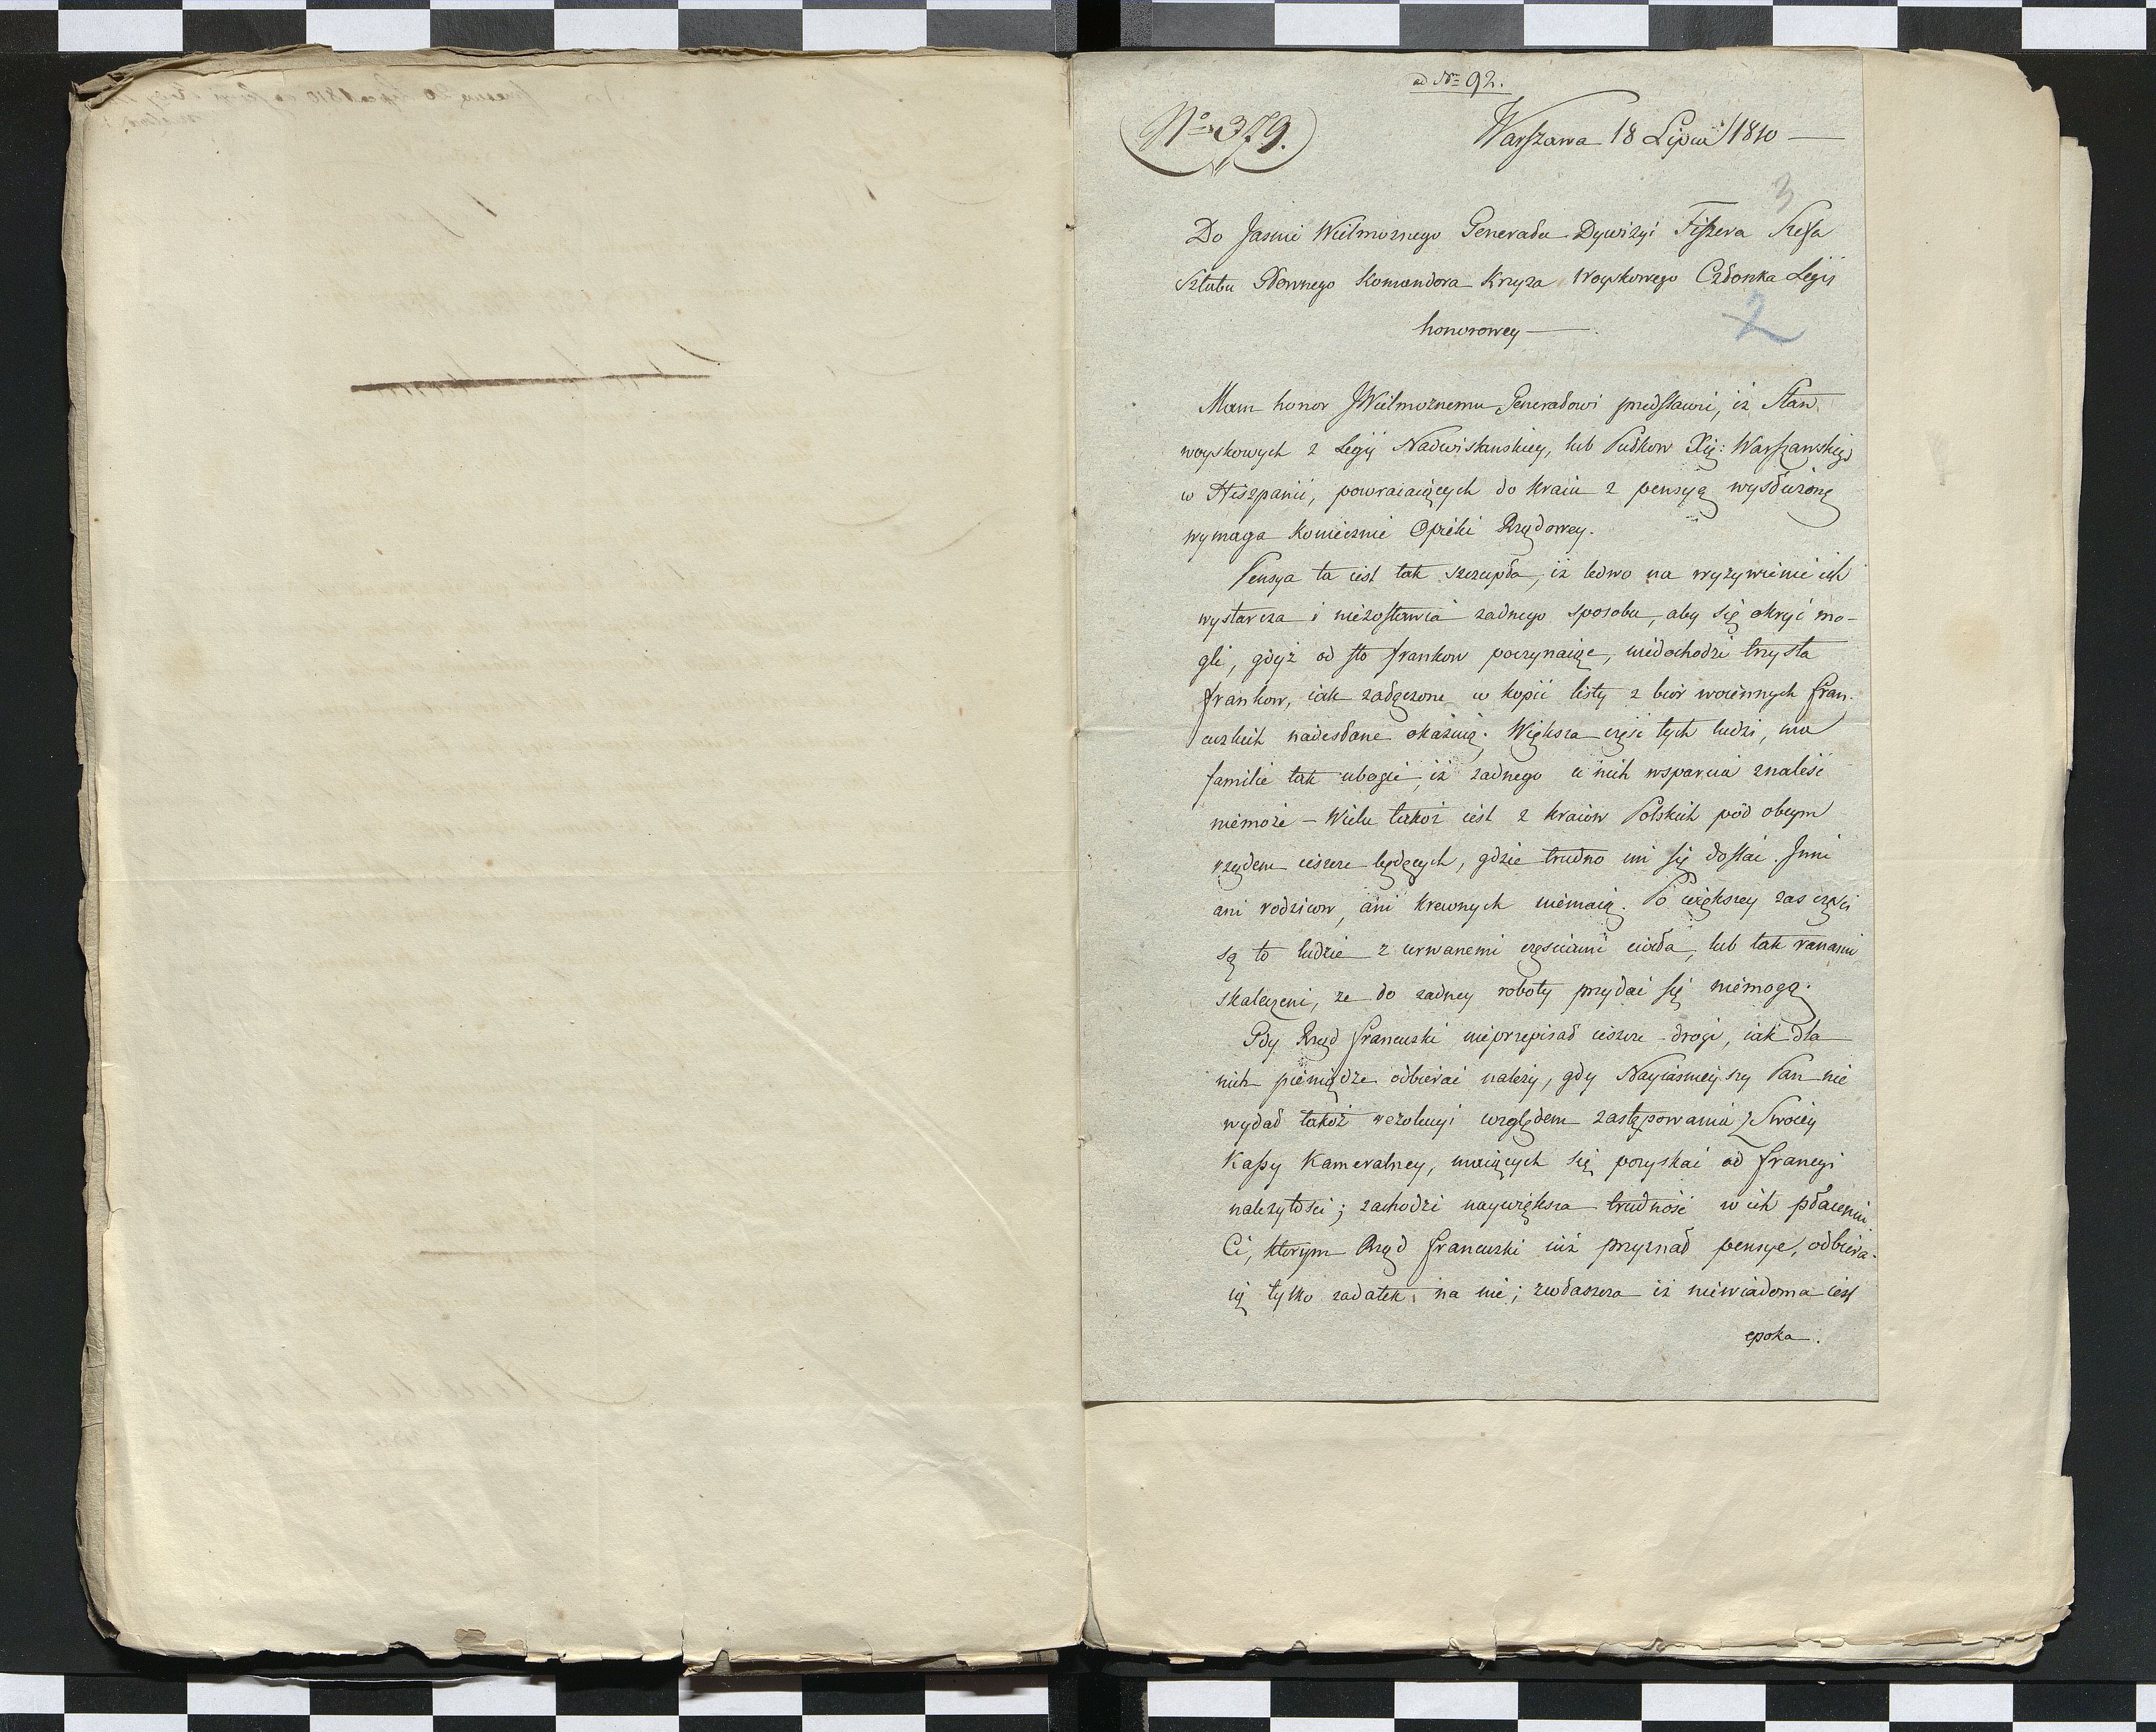 ad Nr 92.
No 379.
Warszawa 18 Lipca 1810 —
3
Do Jasnie Wielmożnego Generała Dywizyi Fiszera Szefa
Sztabu Głownego Komandora Krzyża Woyskowego Członka Legii
honorowey —
2
Mam honor JWielmożnemu Generałowi przedstawić, iż Stan
woyskowych z Legii Nadwislanskiey, lub Pułkow Xię: Warszawskiego
w Hiszpanii, powracaiących do kraiu z pensyą wysłużoną
wymaga koniecznie Opieki Rządowey.
Pensya ta iest tak szczupła, iż ledwo na wyżywienie ich
wystarcza i niezostawia żadnego sposobu, aby się okryć mo-
gli, gdyż od sto frankow poczynaiąc, niedochodzi trzysta
frankow, iak załączone w kopii listy z biór woiennych fran-
cuzkich nadesłane okazuią. Większa część tych ludzi, ma
familie tak ubogie, iż żadnego u nich wsparcia znaleść
niemoże — Wielu takoż iest z kraiów Polskich pod obcym
rządem ieszcze będących, gdzie trudno im się dostać. Inni
ani rodzicow, ani krewnych niemaią. Po większey zas części
są to ludzie z urwanemi częściami ciała, lub tak ranami
skaleczeni, że do żadney roboty przydać się niemogą.
Gdy Rząd francuski nieprzepisał ieszcze drogi, iak dla
nich pieniądze odbierać należy, gdy Nayiasnieyszy Pan nie
wydał takoż rezolucyi względem zastępowania z Swoiey
Kassy Kameralney, maiących się pozyskać od Francyi
należytości; zachodzi naywiększa trudność w ich płaceniu
Ci, ktorym Rząd francuski iuż przyznał pensye, odbiera-
ią tylko zadatek na nie; zwłaszcza iż niewiadoma iest
epoka.